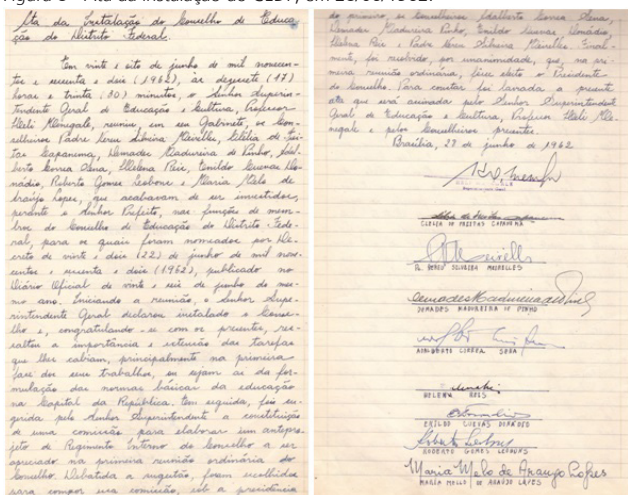 Ata da Instalação do Conselho de Educa
ção do Distrito Federal.
Em vinte e oito de junho de mil novecen-
tos e sessenta e dois (1962), às dezessete (17)
horas e trinta (30) minutos, o Senhor Superin-
tendente Geral de Educação e Cultura, Professor
Heli Menegale, reuniu, em seu Gabinete, os Con-
selheiros Padre Vasco Silveira Meirelles, Clélia de Frei-
tas Capanema, Demades Madureira de Pinho, Adal-
berto Correa Sena, Helena Reis, Enildo Cuevas Do-
mádio, Roberto Gomes Lesbone e Maria Melo de
Araujo Lopes, que acabavam de ser investidos,
perante o Senhor Prefeito, nas funções de mem-
bros do Conselho de Educação do Distrito Fede-
ral, para os quais foram nomeados por De-
creto de vinte e dois (22) de junho de mil nove-
centos e sessenta e dois (1962), publicado no
Diário Oficial de vinte e seis de junho do mes-
mo ano. Iniciando a reunião, o Senhor Supe-
rintendente Geral declarou instalado o Conse-
lho e, congratulando-se com os presentes, res-
saltou a importância e extensão das tarefas
que lhes cabiam, principalmente na primeira
fase dos seus trabalhos, ou sejam as da for-
mulação das normas básicas da educação
na Capital da República. Em seguida, foi su-
gerida pelo Senhor Superintendente a constituição
de uma comissão para elaborar um antepro-
jeto de Regimento Interno do Conselho a ser
apreciado na primeira reunião ordinária do
Conselho. Debatida a sugestão, foram escolhidos
para compor essa comissão, sob a presidência
do primeiro, os Conselheiros Adalberto Correa Sena,
Demades Madureira Pinho, Enildo
Helena Reis e Padre Silveira Meirelles. Final-
mente, foi resolvido, por unanimidade, que, na pri-
meira reunião ordinária, fosse eleito o Presidente
do Conselho. Para constar foi lavrada a presente
ata que será assinada pelo Senhor Superintendente
Geral de Educação e Cultura, Professor Heli Me-
negale e pelos Conselheiros presentes.
Brasília, 27 de junho de 1962
CLELIA DE FREITAS CAPANEMA
SILVEIRA MEIRELLES
Demades Madureira de Pinho
DEMADES MADUREIRA DE PINHO
ADALBERTO CORREA SENA
HELENA REIS
ENILDO CUEVAS
ROBERTO GOMES
Maria Melo de Araujo Lopes
MARIA MELO DE ARAUJO LOPES